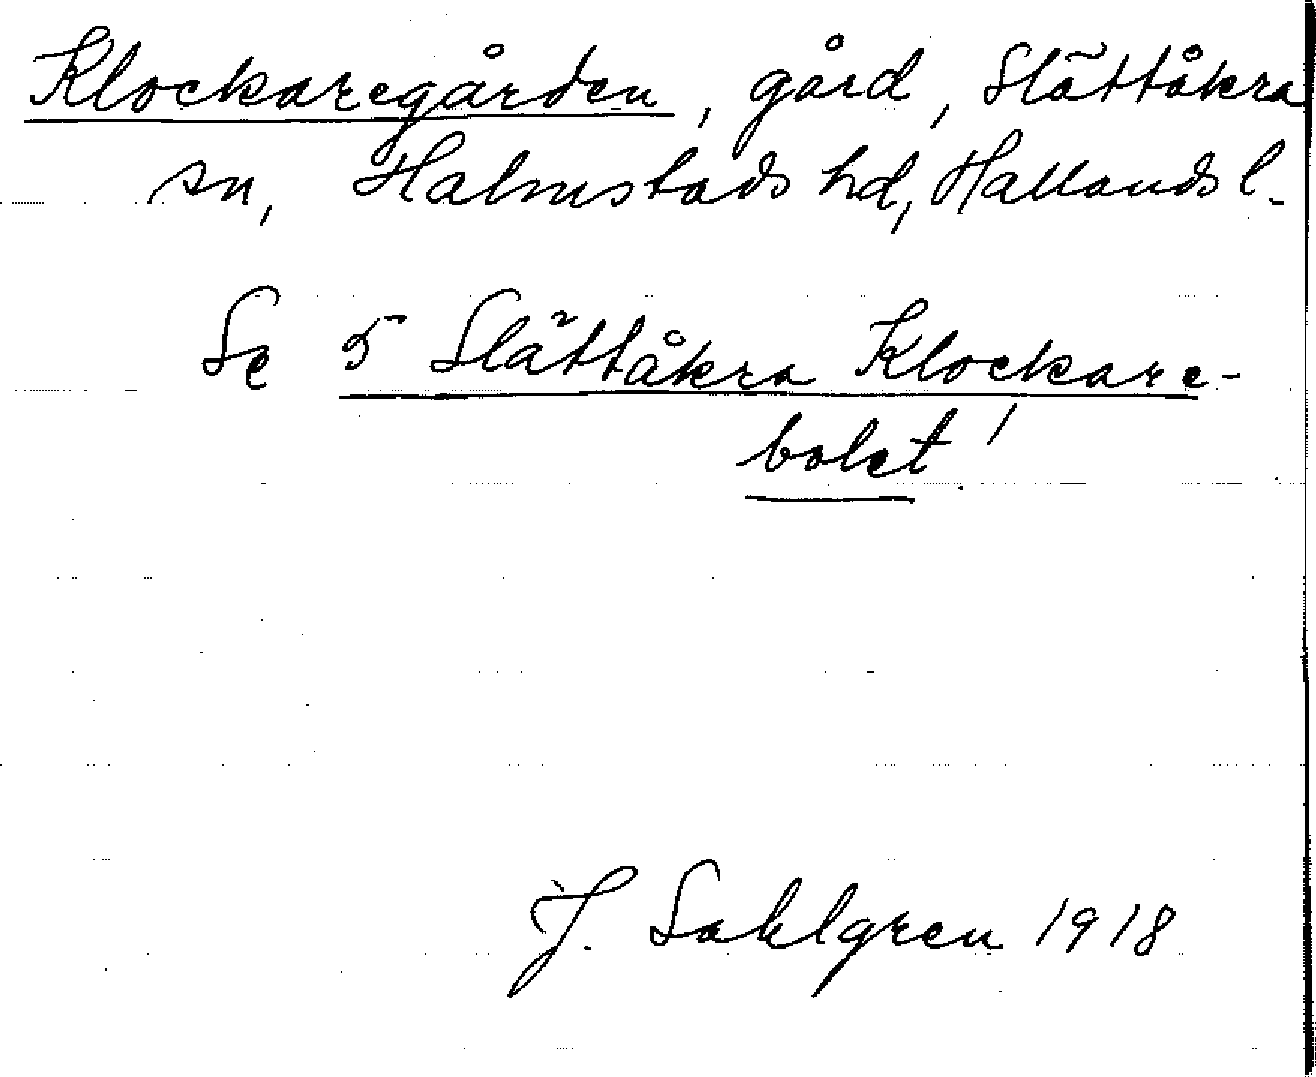 Klockaregården, gård, Slättåkra
sn, Halmstads hd, Hallands l.
Se 5 Slättåkra Klockare-
bolet!
J. Sahlgren 1918